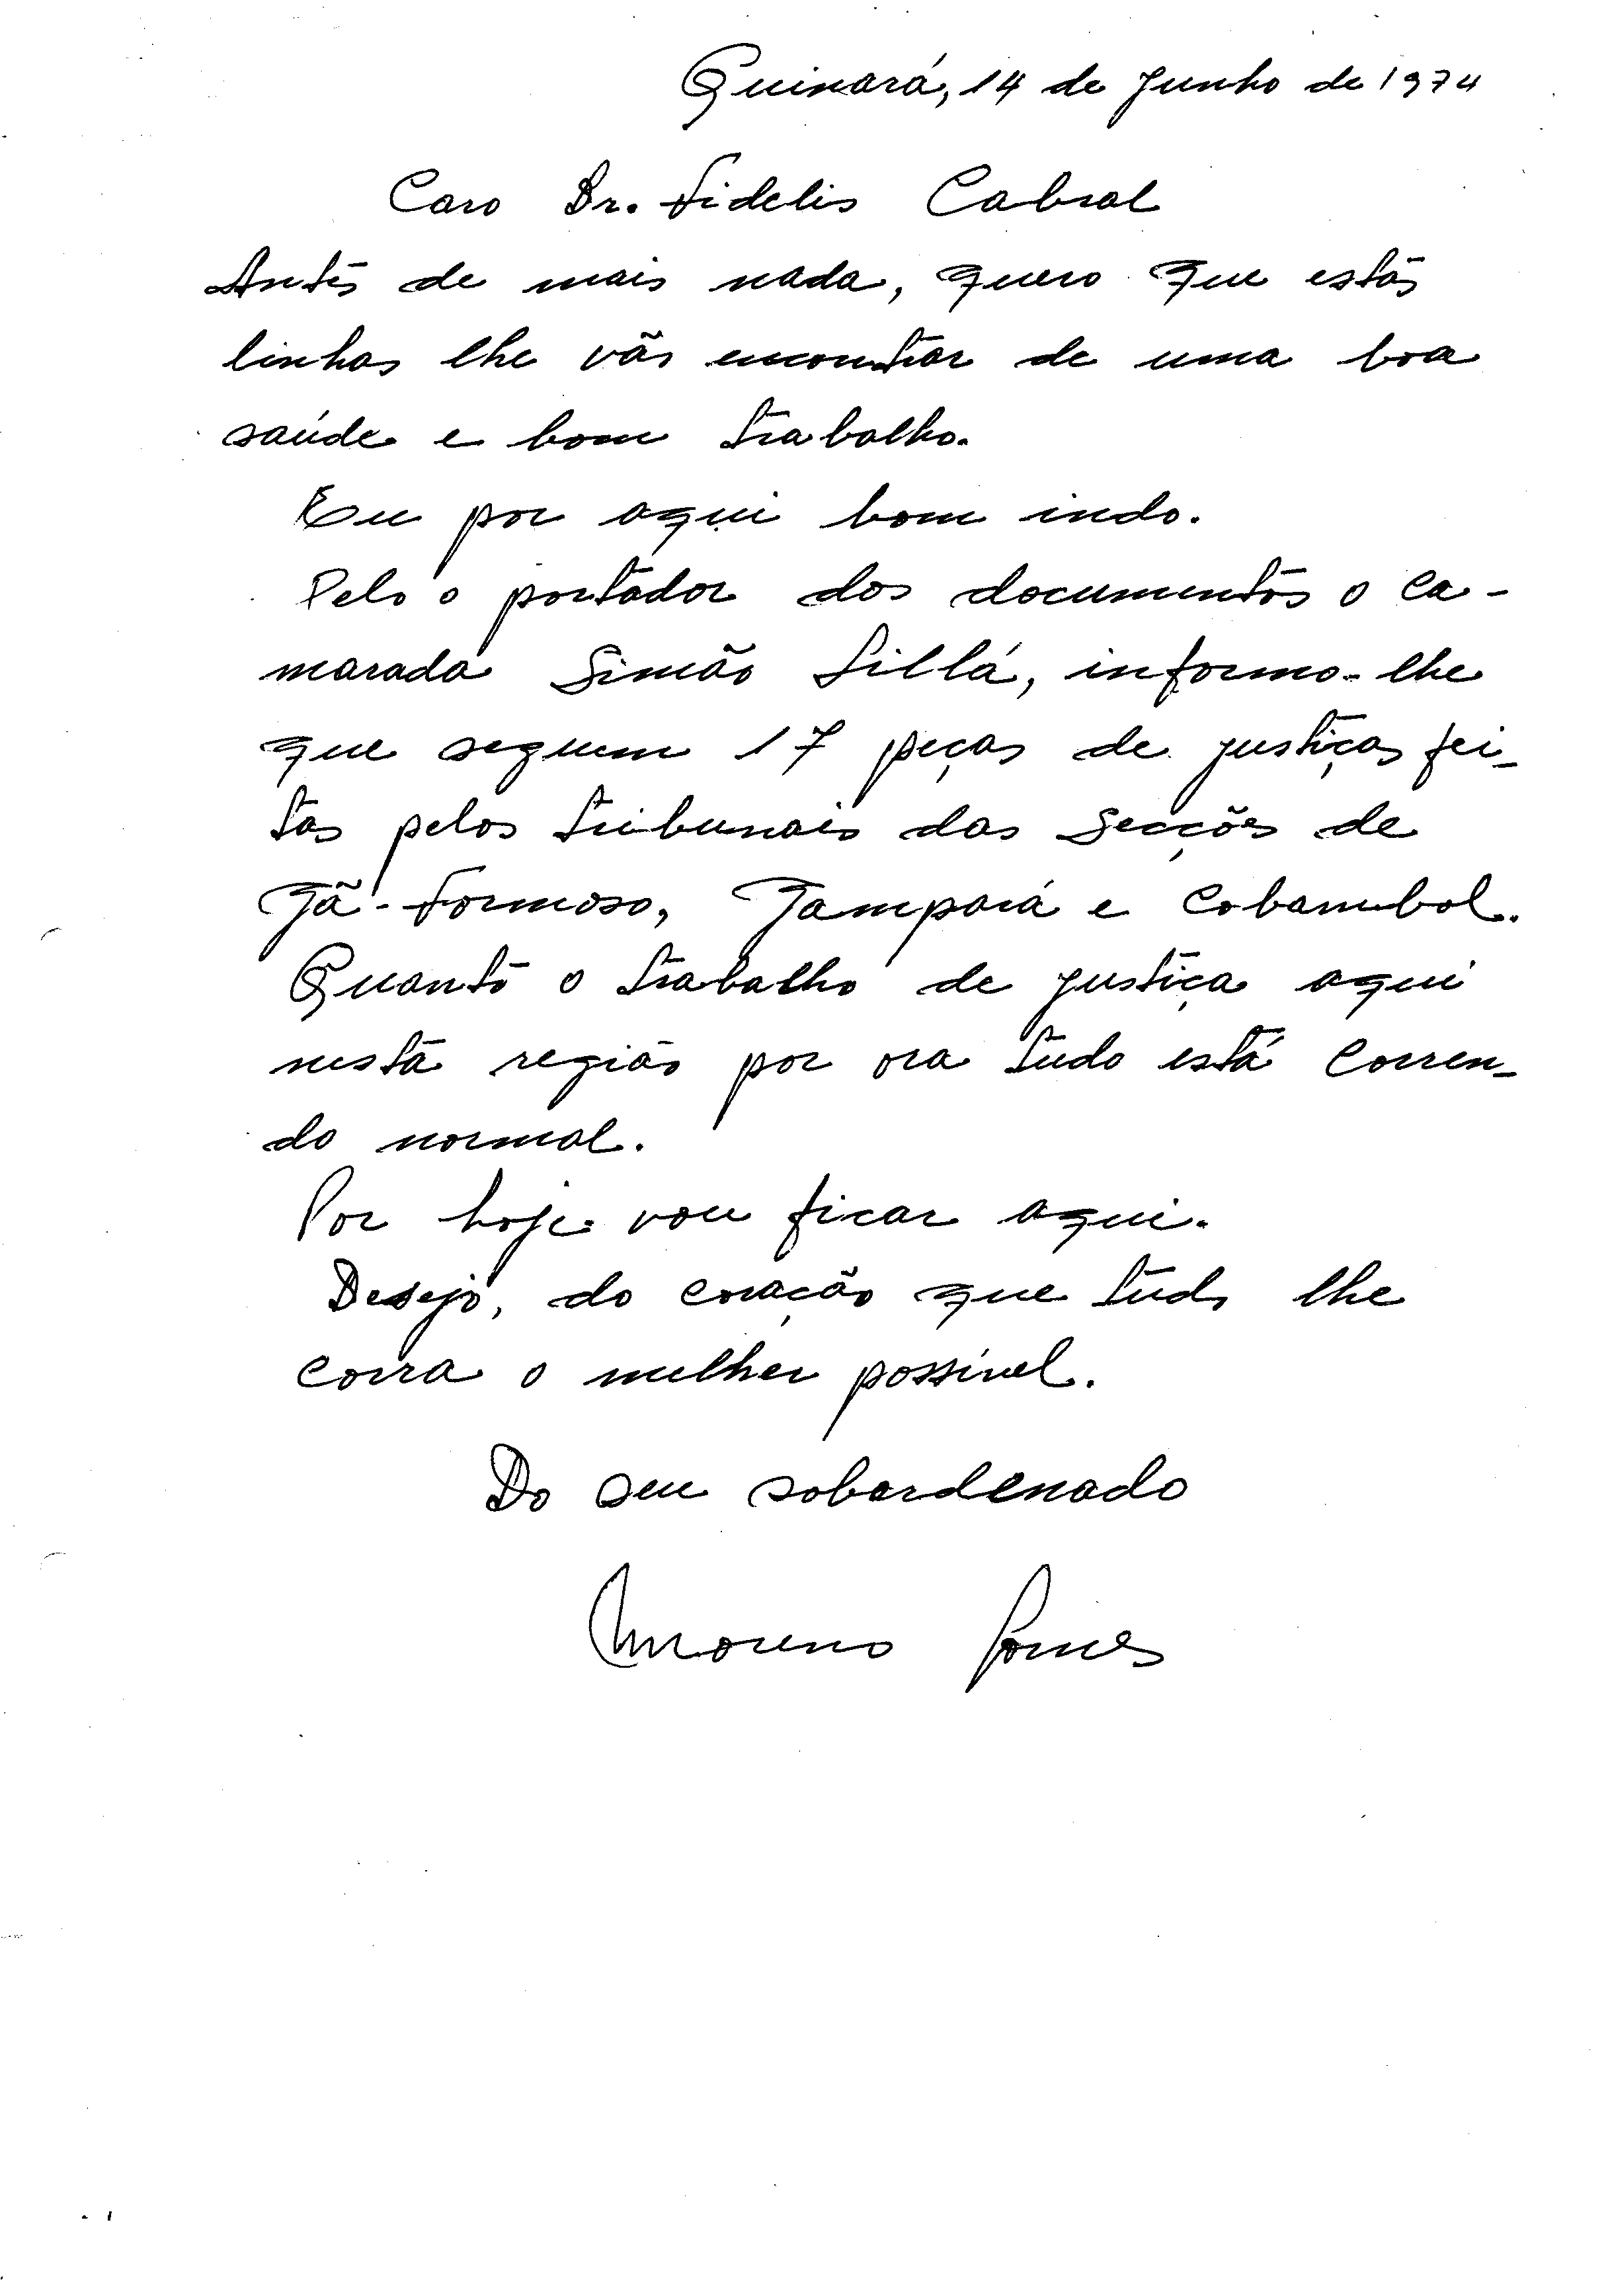 Quinará, 14 de Junho de 1974
Caro Dr. Fidelis Cabral
Antes de mais nada, quero que estas
linhas lhe vão encontrar de uma boa
saúde e bom trabalho.
Eu por aqui bom indo.
Pelo o portador dos documentos o ca-
marada Simão Sillá, informo-lhe
que seguem 17 peças de justiças fei-
tas pelos tribunais das Secções de
Jã-Formoso, Jampará e Cobambol.
Quanto o trabalho de justiça aqui
nesta região por ora tudo está corren-
do normal.
Por hoje vou ficar aqui.
Desejo, do coração que tudo lhe
corra o melher possivel.
Do seu sobordenado
Moreno Gomes